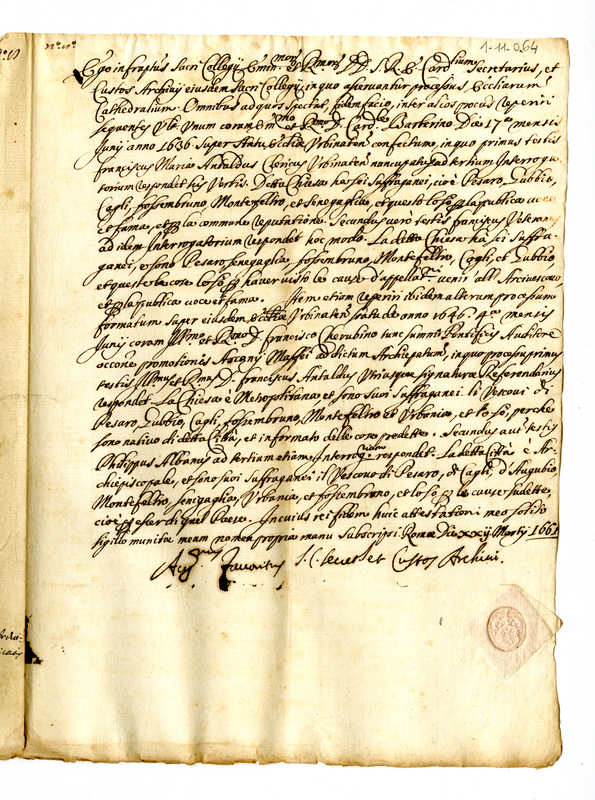 1-11-0.64
Ego infraptus Sacri Collegij Emin. et Rmor. DD. S. R. E. Cardlium Secretarius, et
Custos Archivij eiusdem Sacri Collegij, in quo asservantur processus Ecclesiarum
Cathedralium. Omnibus ad quos spectat, fidem facio, inter alios processus reperiri
sequentes Vz. Unum coram Emo et Rmo D. Card. Barberino Die 17a mensis
Junij anno 1636 super statu Eccliae Urbinaten confectum, in quo primus testis
Franciscus Maria Antaldus Clericus Urbinaten nuncupatus ad tertium Interroga-
torium respondet his verbis. Detta Chiesa ha sei suffraganei, cioè Pesaro, Gubbio,
Cagli, fossembruno, Montefeltro, et Senegaglia, et questo lo sò p la publica voce
et fama, et p la commune reputatione. Secundus vero testis franciscus Veterani
ad idem Interrogatorium respondet hoc modo. La detta Chiesa hà sei suffra-
ganei, e sono Pesaro, senegaglia, fossembruno, Montefeltro, Cagli, et Gubbio
et queste cose lo sò p haver visto le cause d'appellatni venir all' Arcivescovo
et p la publica voce et fama. Item etiam reperiri ibidem alterum processum
formatum super eiusdem Eccliae Urbinaten statu de anno 1646. 4a mensis
Junij coram Illmo et Rmo D. Francisco Cherubino tunc summi Pontificis Auditore
occone promotionis Ascanij Maffei ad dictum Archiepatum, in quo processu primus
testis Illmus et Rmus D. franciscus Antaldus Utriusque signaturae Referendarius
respondet. La Chiesa è Metropolitana et sono suoi suffraganei li Vescovi di
Pesaro, Gubbio, Cagli, fossembruno, Montefeltro et Urbania, et lo sò, perche
sono nativo di detta Città, et informato delle cose predette. Secundus aut testis
Philippus Albanus ad tertium etiam Interrogrium respondet. La detta Città è Ar-
chiepiscopale, et sono suoi suffraganei il Vescovo di Pesaro, di Cagli, d'Augubio
Montefeltro, senigaglia, Urbania, et fossembruno, et lo so p le cause sudette,
cioè p esser di quel Paese. In cuius rei fidem huic attestationi meo solito
sigillo munitae meam nomen propria manu subscripsi. Romae Die xxij Martij 1661
Augnus Favoritus S. C. Secret. et Custos Archivi.